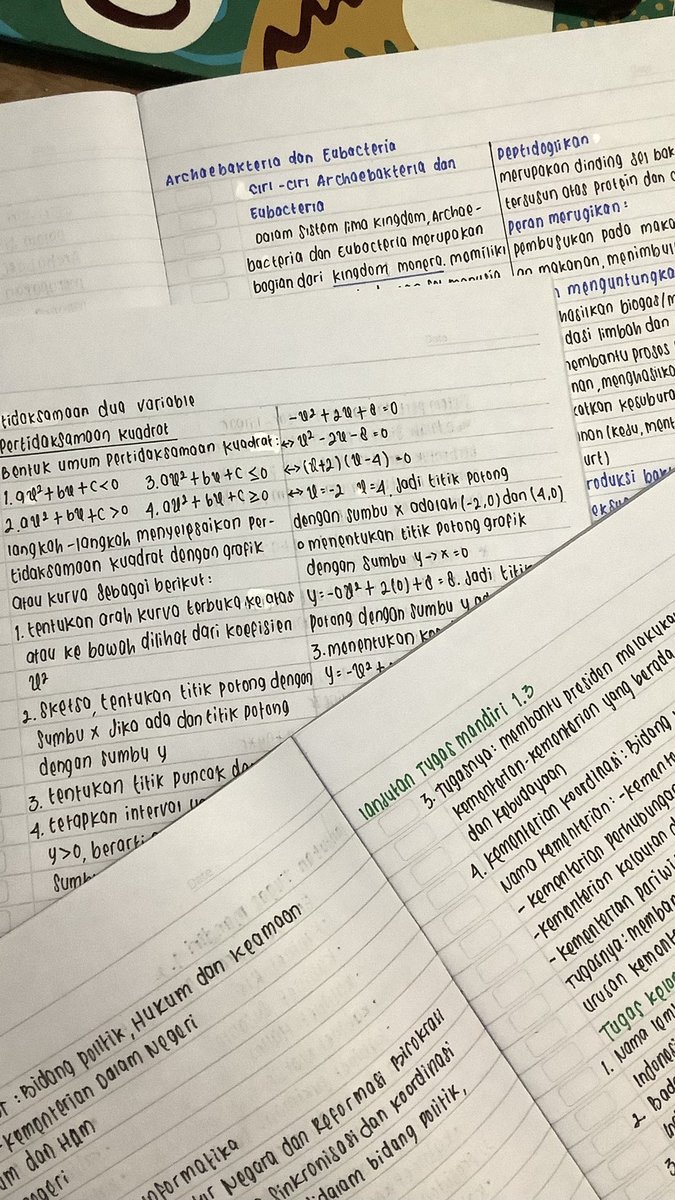 Archaebakteria dan Eubacteria
Ciri-ciri Archaebakteria dan
Eubacteria
Dalam sistem lima kingdom, Archae-
bacteria dan Eubacteria merupakan
bagian dari kingdom monera. memiliki
Peptidoglikan
merupakan dinding sel bak
tersusun atas protein dan
Peran merugikan:
pembusukan pada maka
an makanan, menimbul
menguntungka
hasilkan biogas/m
dasi limbah dan
membantu proses
nan, menghasilka
katkan kesubura
nan (keju, ment
urt)
roduksi
tidaksamaan dua variable
Pertidaksamaan kuadrat
Bentuk umum Pertidaksamaan kuadrat:
1. ax²+bx+c<0 3. ax²+bx+c≤0
2. ax²+bx+c>0 4. ax²+bx+c≥0
langkah-langkah menyelesaikan Per-
tidaksamaan kuadrat dengan grafik
atau kurva sebagai berikut:
1. tentukan arah kurva terbuka ke atas
atau ke bawah dilihat dari koefisien
x²
2. Sketsa, tentukan titik potong dengan
sumbu x jika ada dan titik potong
dengan sumbu y
3. tentukan titik puncak
4. tetapkan interval
y>0, berarti
sumb
-x²+2x+8=0
↔ x²-2x-8=0
↔ (x+2)(x-4)=0
↔ x=-2 x=4. Jadi titik potong
dengan sumbu x adalah (-2,0) dan (4,0)
o menentukan titik potong grafik
dengan sumbu y → x=0
y=-0x²+2(0)+8=8. Jadi titik
potong dengan sumbu y
3. menentukan
y=-x²+
lanjutan Tugas mandiri 1.3
3. Tugasnya: membantu presiden melakukan
kementerian-kementerian yang berada
dan kebudayaan
4. Kementerian koordinasi: Bidang
Nama kementerian: -kemente
- kementerian perhubungan
-kementerian kelautan
- kementerian pariwi
Tugasnya: memban
urusan kement
Tugas kelo
1. Nama lem
Indonesi
2. Bada
3
: Bidang politik, Hukum dan keamaan
-kementerian Dalam Negeri
um dan Ham
negeri
informatika
Negara dan Reformasi Birokrasi
Sinkronisasi dan koordinasi
didalam bidang politik,